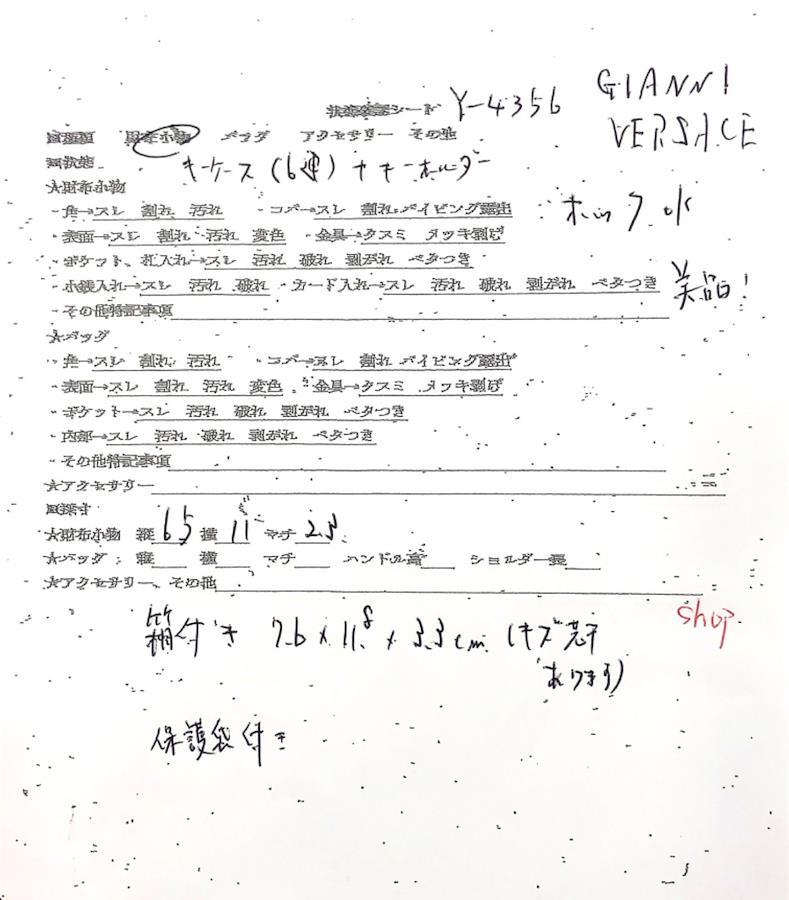 状態確認シート Y-4356 GIANNI
VERSACE
財布小物 バッグ アクセサリー その他
キーケース(6連)+キーホルダー
★財布小物
・角→スレ 割れ 汚れ ・コバ→スレ 割れ パイピング露出
ホック OK
・表面→スレ 割れ 汚れ 変色 ・金具→クスミ メッキ剥げ
・ポケット、札入れ→スレ 汚れ 破れ 剥がれ ベタつき
・小銭入れ→スレ 汚れ 破れ ・カード入れ→スレ 汚れ 破れ 剥がれ ベタつき
美品!
・その他特記事項
★バッグ
・角→スレ 割れ 汚れ ・コバ→スレ 割れ パイピング露出
・表面→スレ 割れ 汚れ 変色 ・金具→クスミ メッキ剥げ
・ポケット→スレ 汚れ 破れ 剥がれ ベタつき
・内部→スレ 汚れ 破れ 剥がれ ベタつき
・その他特記事項
★アクセサリー
採寸
★財布小物 縦 6.5 横 11 マチ 2.5
★バッグ: 縦 横 マチ ハンドル高 ショルダー長
★アクセサリー、その他
shop
箱付き 7.6×11.8×3.3cm (キズ若干
あります)
保護袋付き